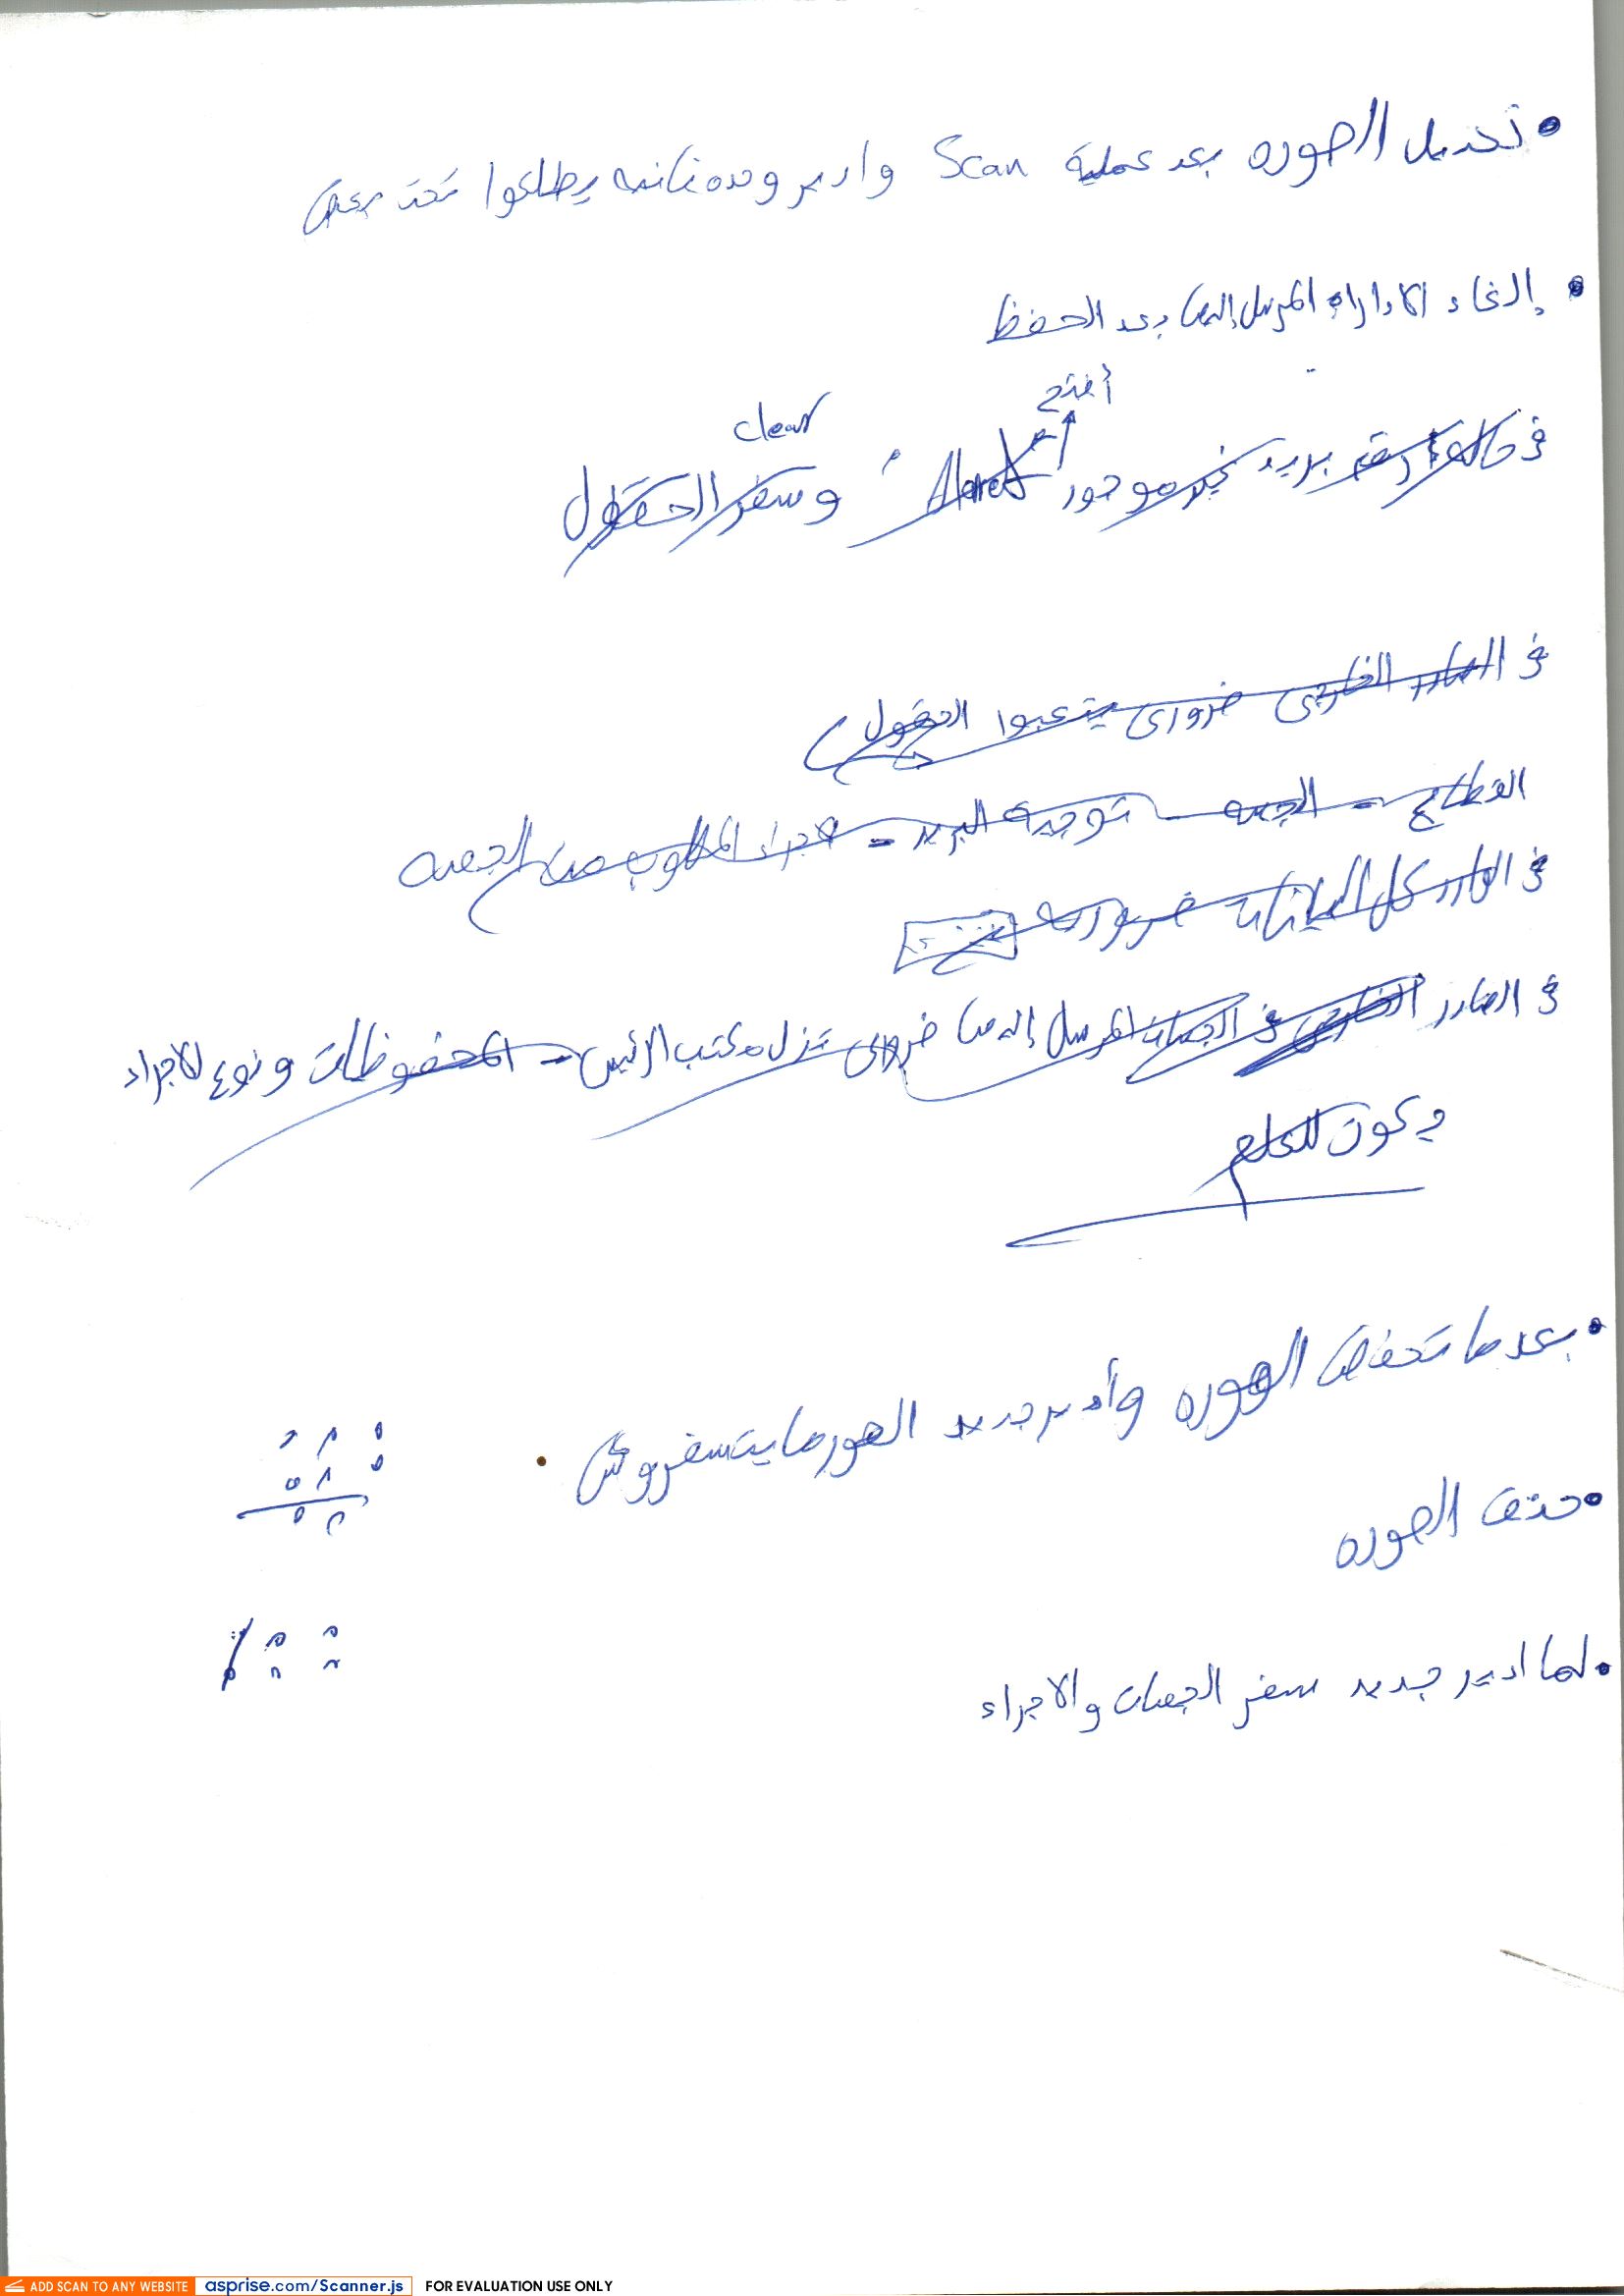 • تحميل الصوره بعد عملية Scan وادير وحده ثانيه يطلعوا تحت بعض
• إلغاء الادارات المرسل إليها بعد الحفظ
أفتح
clear
في حالة رقم بريد غير موجود Alaret وسفر الحقول
في الصادر الخارجي ضروري يتعبوا الحقول
القطاع - الجهه - توجيه البريد - الاجراء المطلوب من الجهه
في الوارد كل البيانات ضروريه
في الصادر الخارجي في الجهات المرسل إليها ضروري تنزل مكتب الرئيس - المحفوظات ونوع الاجراء
يكون للعلم
• بعد ما تحفظ الصوره وأدير جديد الصور ما يتسفروش
• حذف الصوره
• لما ادير جديد سفر الجهات والاجراء
ADD SCAN TO ANY WEBSITE asprise.com/Scanner.js FOR EVALUATION USE ONLY